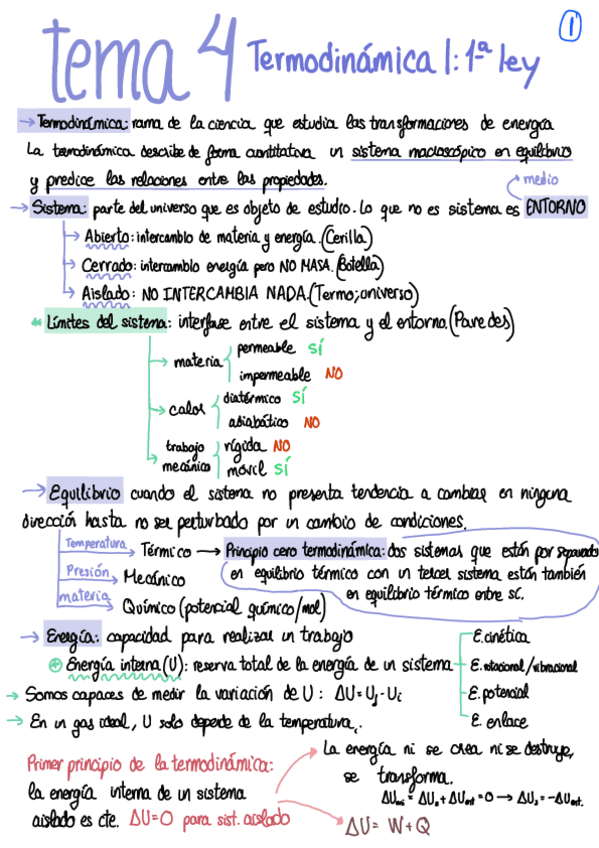 1
tema 4 Termodinámica I: 1ª ley
→ Termodinámica: rama de la ciencia que estudia las transformaciones de energía
La termodinámica describe de forma cuantitativa un sistema macroscópico en equilibrio
y predice las relaciones entre las propiedades.
medio
→ Sistema: parte del universo que es objeto de estudio. Lo que no es sistema es ENTORNO
→ Abierto: intercambio de materia y energía. (Cerilla)
→ Cerrado: intercambio energía pero NO MASA. (Botella)
→ Aislado: NO INTERCAMBIA NADA. (Termo; universo)
* Límites del sistema: interfase entre el sistema y el entorno. (Paredes)
→ materia
permeable SÍ
impermeable NO
→ calor
diatérmico SÍ
adiabático NO
→ trabajo mecánico
rígida NO
móvil SÍ
→ Equilibrio cuando el sistema no presenta tendencia a cambiar en ninguna
dirección hasta no ser perturbado por un cambio de condiciones.
Temperatura → Térmico → Principio cero termodinámica: dos sistemas que están por separado
en equilibrio térmico con un tercer sistema están también
en equilibrio térmico entre sí.
Presión → Mecánico
materia → Químico (potencial químico/mol)
→ Energía: capacidad para realizar un trabajo
Energía interna (U): reserva total de la energía de un sistema
E. cinética
E. rotacional/vibracional
E. potencial
E. enlace
→ Somos capaces de medir la variación de U: ΔU = Uf - Ui
→ En un gas ideal, U solo depende de la temperatura.
Primer principio de la termodinámica:
la energía interna de un sistema
aislado es cte. ΔU=0 para sist. aislado
La energía ni se crea ni se destruye,
se transforma.
ΔU = W+Q